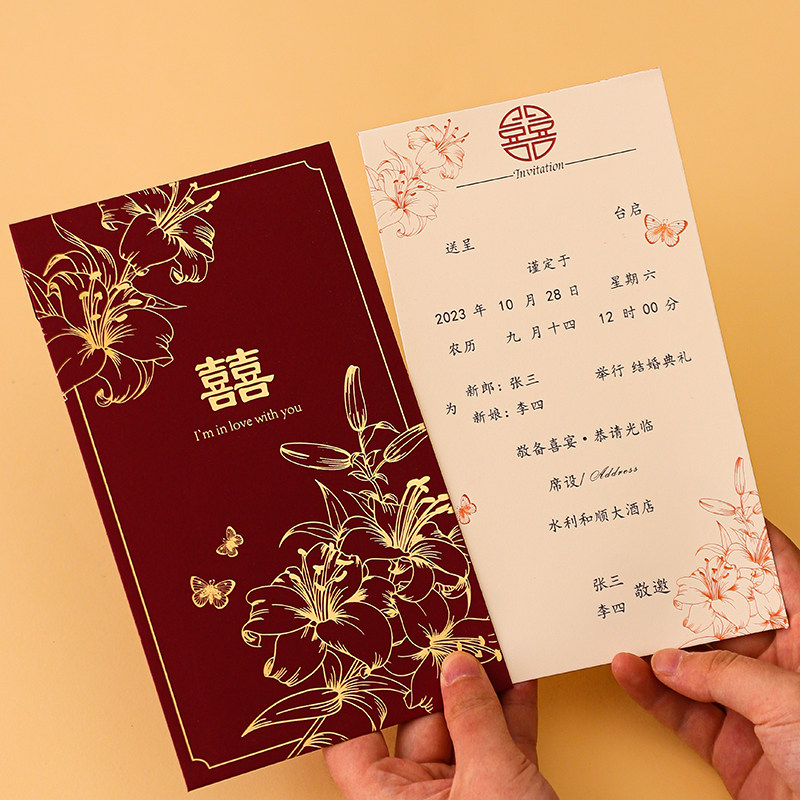 囍
I'm in love with you
囍
Invitation
台启
送呈
谨定于
2023 年 10 月 28 日 星期六
农历 九 月十四 12 时 00 分
为 新郎：张三 举行 结婚典礼
新娘：李四
敬备喜宴·恭请光临
席设/ Address
水利和顺大酒店
张三
李四 敬邀